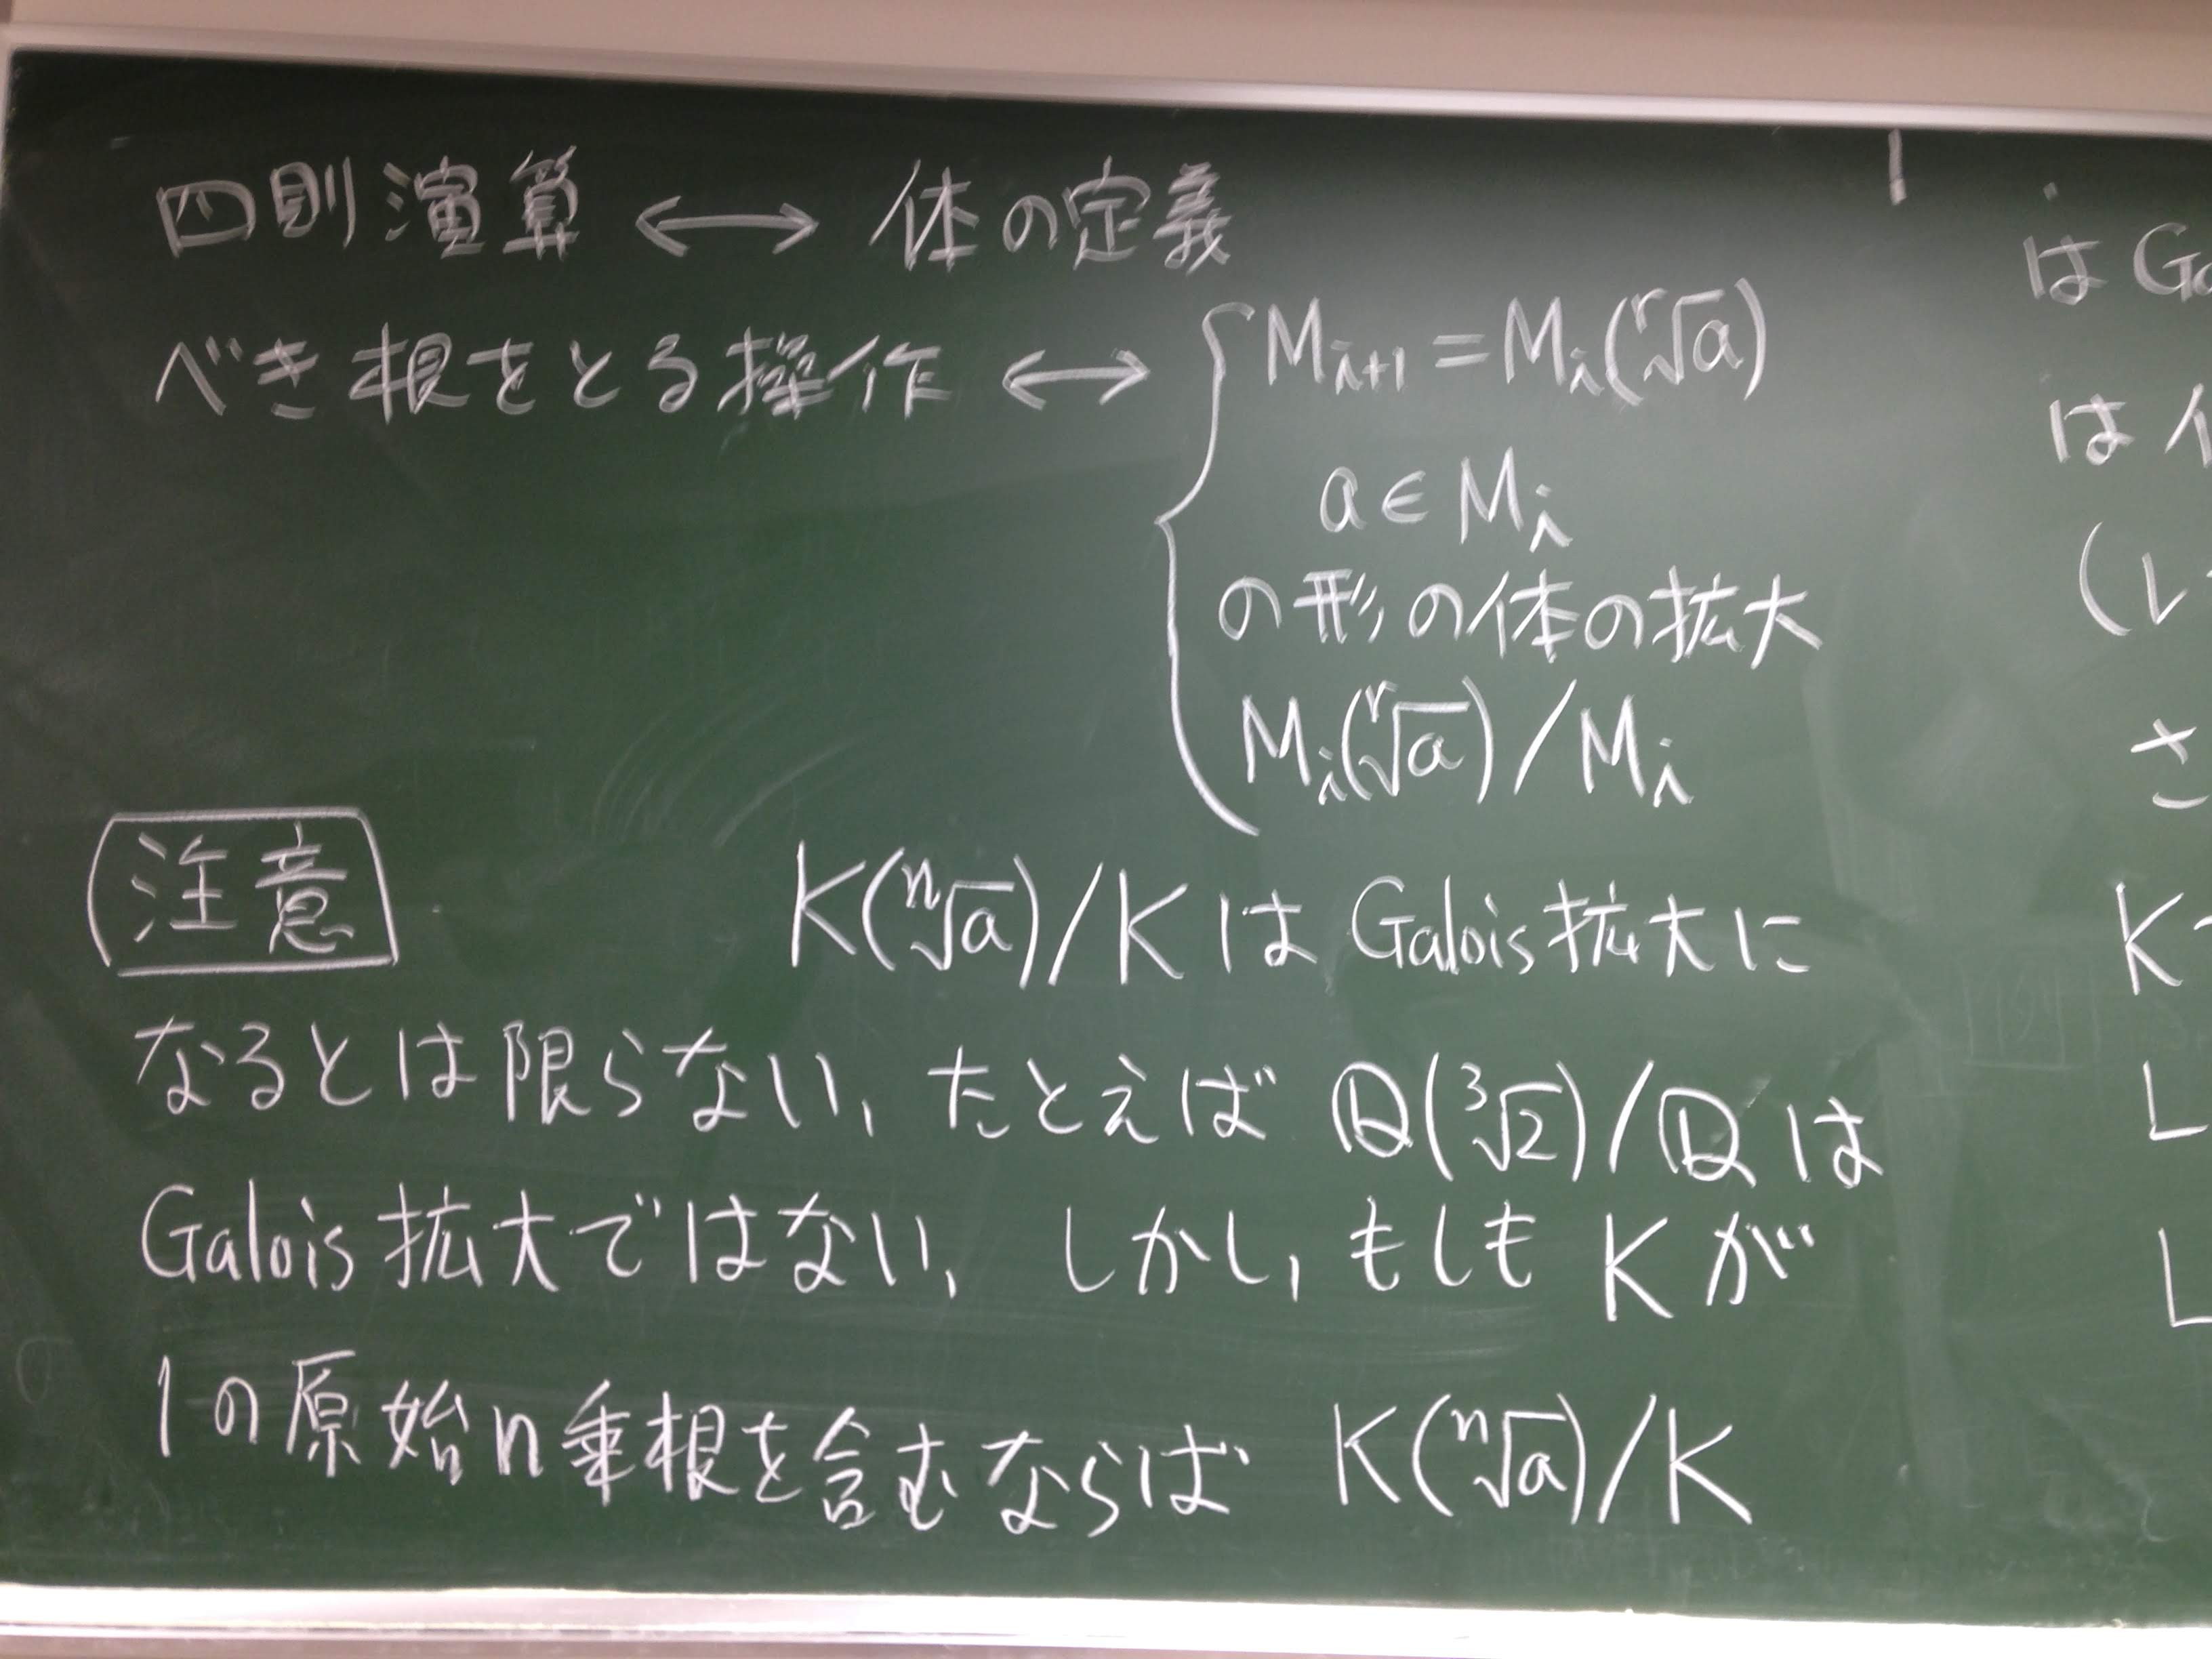 四則演算 ⟷ 体の定義
べき根をとる操作 ⟷ { M_{i+1} = M_i(ʳ√a)
a ∈ M_i
の形の体の拡大
M_i(ʳ√a) / M_i
注意 K(ⁿ√a)/K は Galois拡大に
なるとは限らない, たとえば ℚ(³√2)/ℚ は
Galois拡大ではない, しかし, もしも K が
1の原始n乗根を含むならば K(ⁿ√a)/K
は Ga
は
(L
さ
K
L
L